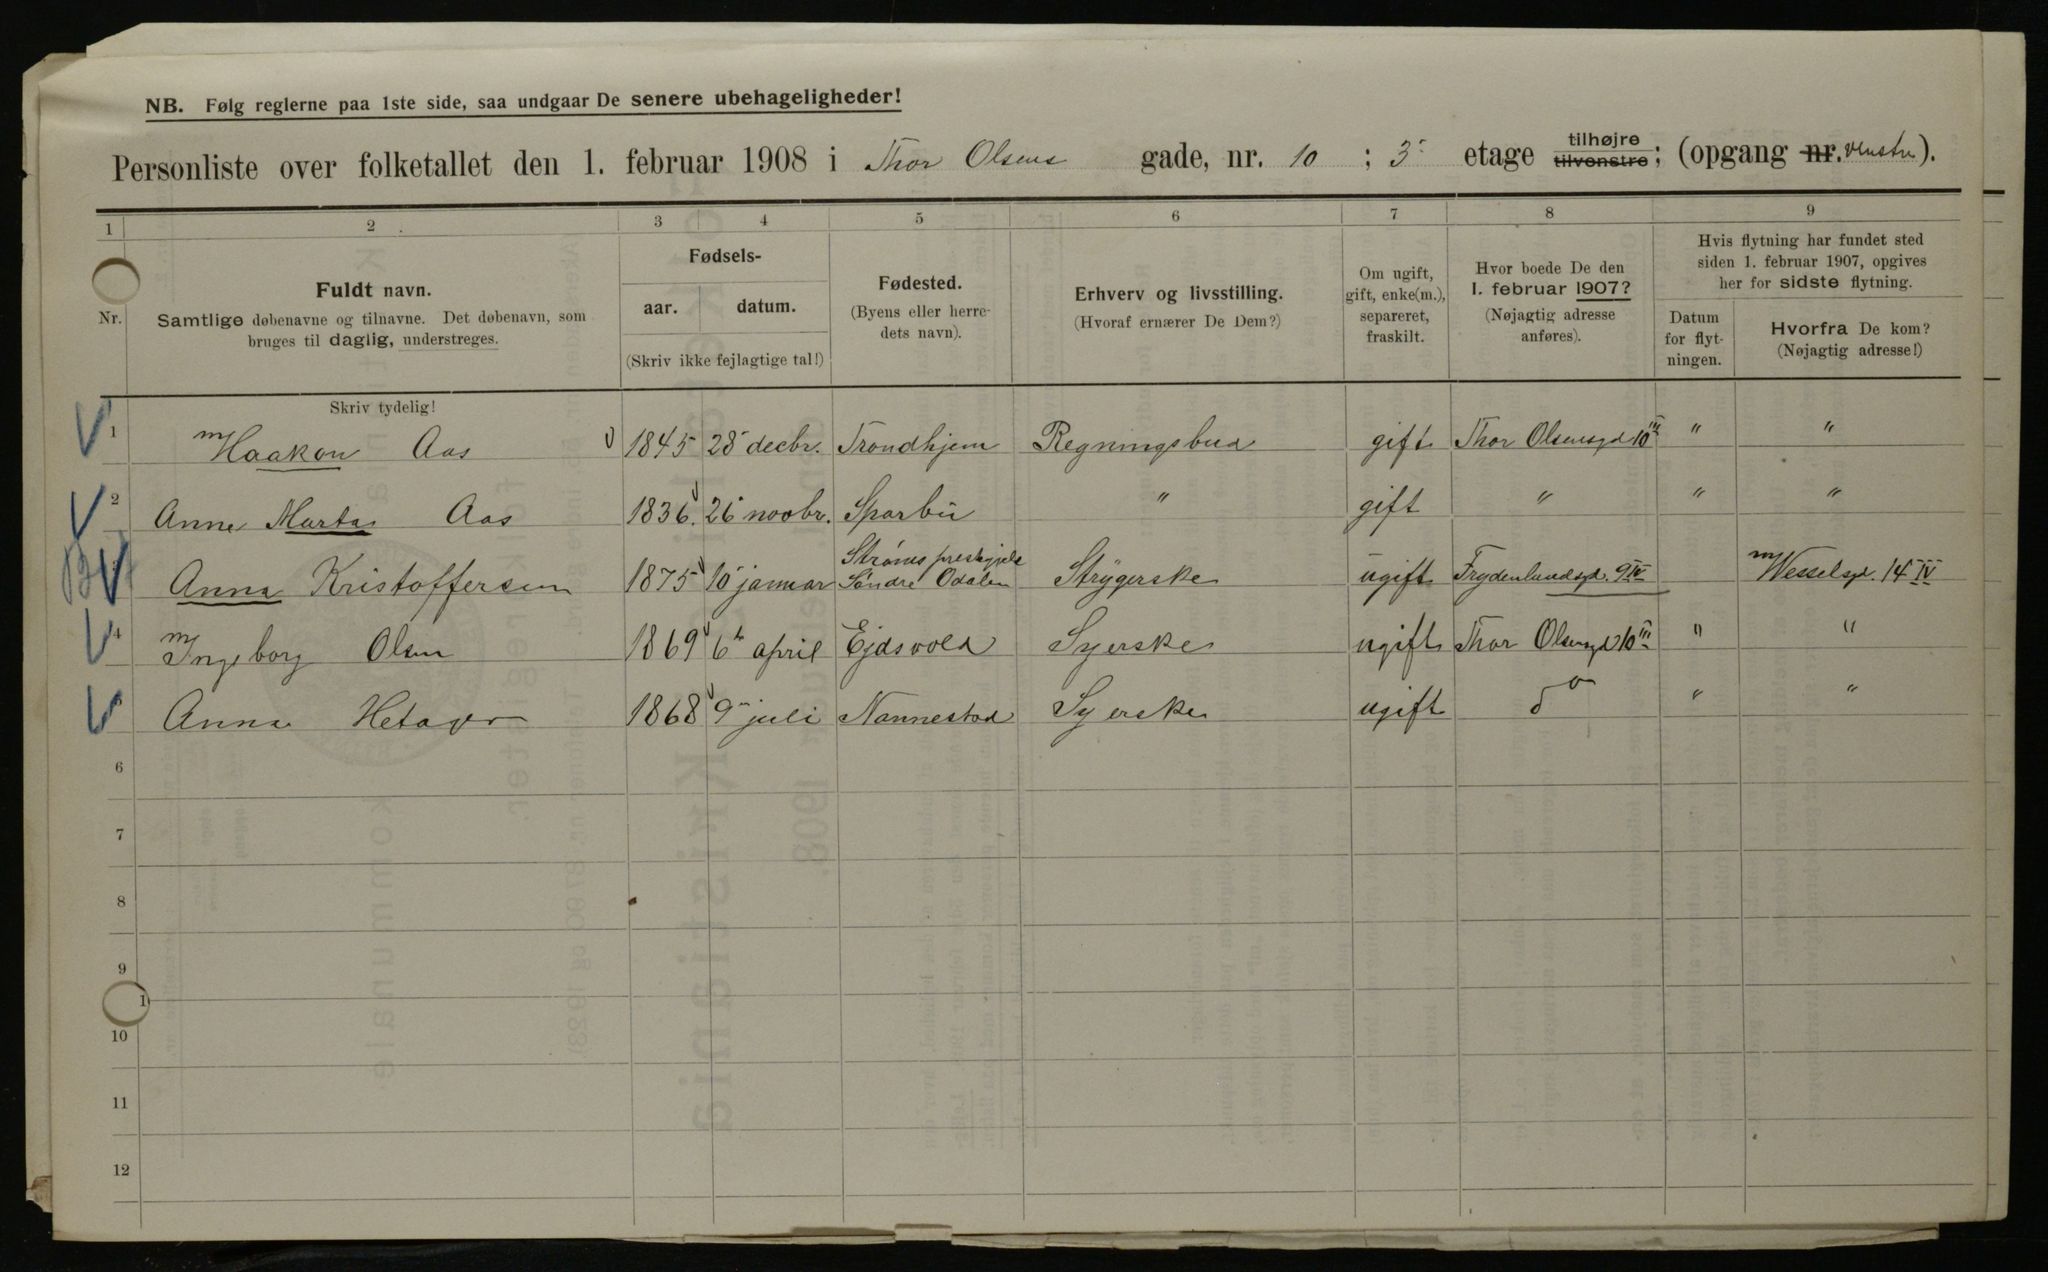 NB. Følg reglerne paa 1ste side, saa undgaar De senere ubehageligheder!
Personliste over folketallet den 1. februar 1908 i Thor Olsens gade, nr. 10 ; 3 etage tilhøjre tilvenstre; (opgang nr. venstre).
1 2 3 4 5 6 7 8 9
Nr.
Fuldt navn.
Samtlige døbenavne og tilnavne. Det døbenavn, som
bruges til daglig, understreges.
Skriv tydelig!
Fødsels-
aar. datum.
(Skriv ikke fejlagtige tal!)
Fødested.
(Byens eller herre-
dets navn).
Erhverv og livsstilling.
(Hvoraf ernærer De Dem?)
Om ugift,
gift, enke(m.),
separeret,
fraskilt.
Hvor boede De den
1. februar 1907?
(Nøjagtig adresse
anføres).
Hvis flytning har fundet sted
siden 1. februar 1907, opgives
her for sidste flytning.
Datum
for flyt-
ningen.
Hvorfra De kom?
(Nøjagtig adresse!)
1 m Haakon Aas 1845 28 decbr. Trondhjem Regningsbud gift Thor Olsensgd 10 III " "
2 Anne Marta Aas 1836. 26 novbr. Sparbu " gift " " "
Strøms prestgjeld
Anna Kristoffersen 1875 10 januar Søndre Odalen Strygerske ugift Frydenlundsgd. 9 IV m Wesselsgd. 14 IV
4 m Ingeborg Olsen 1869 6te april Ejdsvold Syerske ugift Thor Olsensgd 10 III " "
Anna Hetager 1868 9 juli Nannestad Syerske ugift do " "
6
7
8
9
1
10
11
12